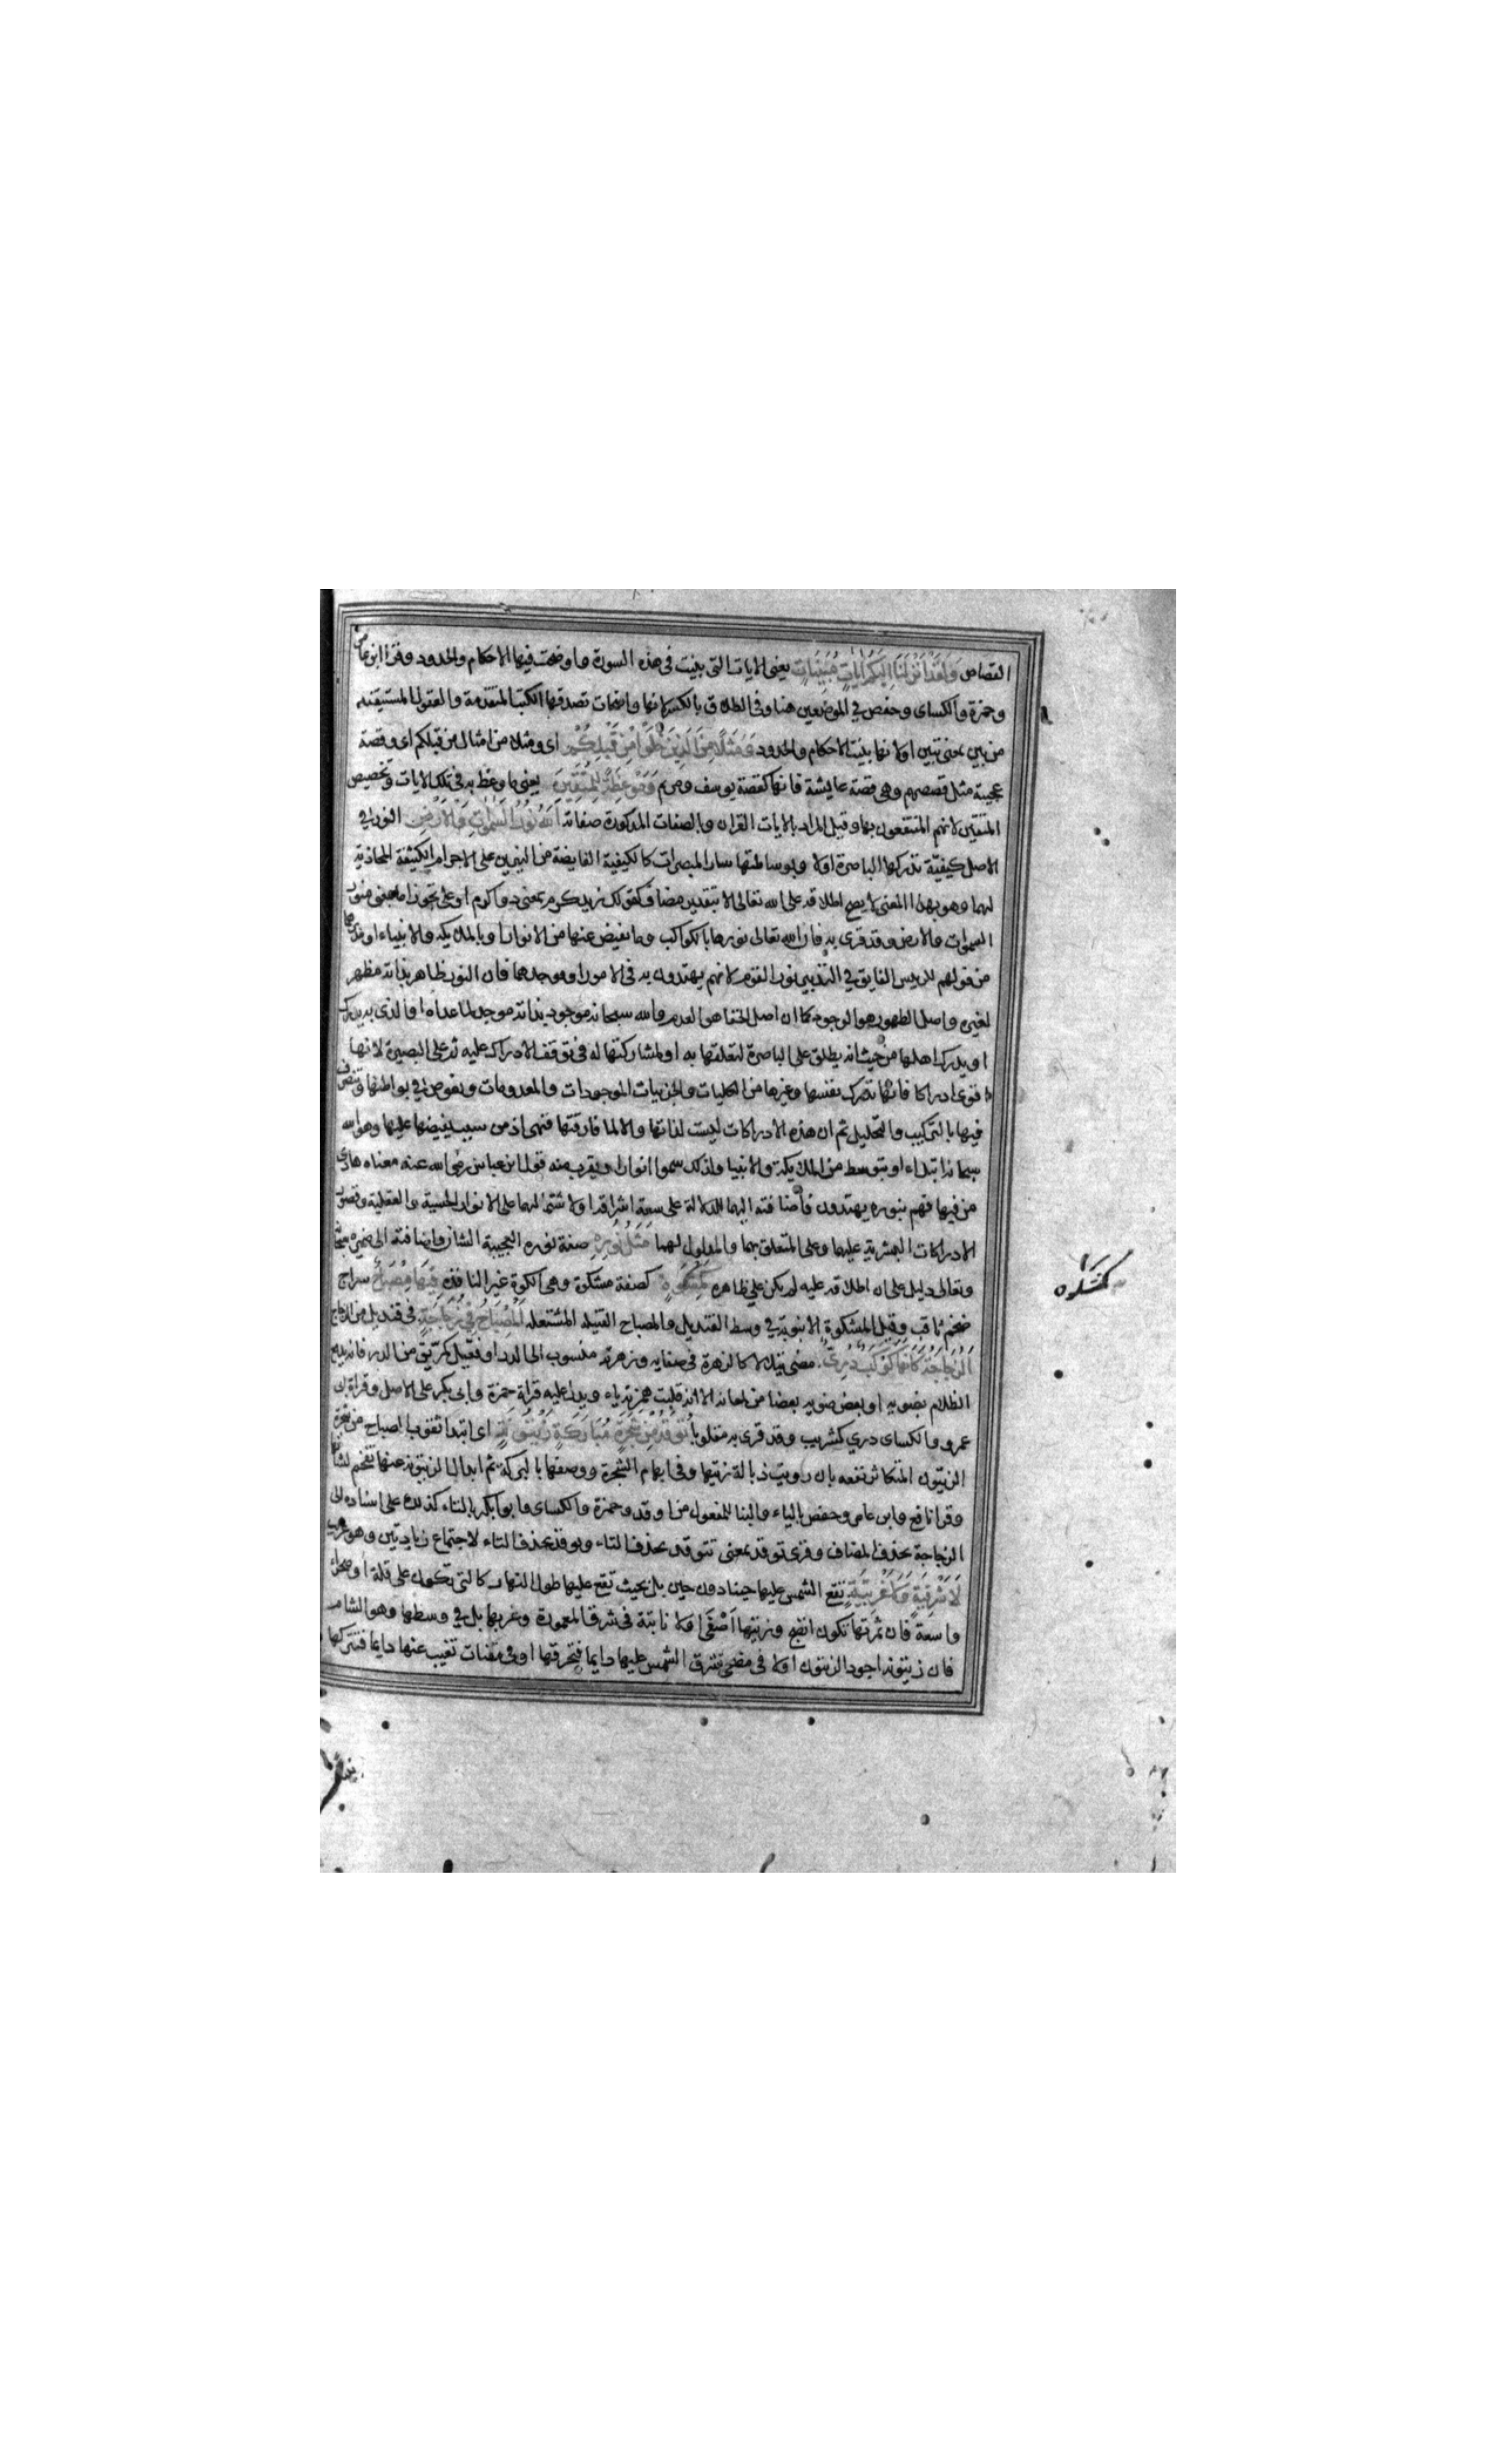 القصاص وَلَقَدْ اَنْزَلْنَا اِلَيْكُمْ اٰيَاتٍ مُبَيِّنَاتٍ يعنى الايات التى بينت فى هذه السورة واوضحت فيها الاحكام والحدود وقرا ابن عامر
وحمزة والكساى وحفص في الموضعين هنا وفى الطلاق بالكسر لانها واضحات تصدقها الكتب المتقدمة والعقول المستقيمة
من بين بمعنى تبين اولانها بينت الاحكام والحدود وَمَثَلًا مِنَ الَّذِينَ خَلَوْا مِنْ قَبْلِكُمْ اى ومثلا من امثال من قبلكم اى وقصة
عجيبة مثل قصصهم وهى قصة عايشة فانها كقصة يوسف ومريم وَمَوْعِظَةً لِلْمُتَّقِينَ يعنى ما وعظ به فى تلك الايات وتخصيص
المتقين لانهم المنتفعون بها وقيل المراد بالايات القران والصفات المذكورة صفاته اَللّٰهُ نُورُ السَّمٰوَاتِ وَالْاَرْضِ النور في
الاصل كيفية تدركها الباصرة اولا وبوساطتها ساير المبصرات كالكيفية الفايضة من النيرين على الاجرام الكثيفة المحاذية
لهما وهو بهذا المعنى لا يصح اطلاقه على الله تعالى الا بتقدير مضاف كقولك زيد كرم بمعنى ذو كرم او على تجوز اما بمعنى منور
السموات والارض وقد قرى به فان الله تعالى نورها بالكواكب وما يفيض عنها من الانوار او بالملايكة والانبياء او مدبرهما
من قولهم للريس الفايق في التدبير نور القوم لانهم يهتدون به فى الامور او موجدهما فان النور ظاهر بذاته مظهر
لغيره واصل الظهور هو الوجود كما ان اصل الخفا هو العدم والله سبحانه موجود بذاته موجد لما عداه او الذى به يدرك
او يدرك اهلها من حيث انه يطلق على الباصرة لتعلقها به او لمشاركتها له فى توقف الادراك عليه ثم على البصيرة لانها
اقوى ادراكا فانها تدرك نفسها وغيرها من الكليات والجزييات الموجودات والمعدومات وتغوص فى بواطنها وتتصرف
فيها بالتركيب والتحليل ثم ان هذه الادراكات ليست لذاتها والا لما فارقتها فهى اذ من سبب يفيضها عليها وهو الله
سبحانه ابتداء او بتوسط من الملايكة والانبيا ولذلك سموا انوارا ويقرب منه قول ابن عباس رضى الله عنه معناه هادى
من فيها فهم بنوره يهتدون واضافته اليهما للدلالة على سعة اشراقه او لاشتمالهما على الانوار الحسية والعقلية وقصور
الادراكات البشرية عليهما وعلى المتعلق بهما والمدلول لهما مَثَلُ نُورِهِ صفة نوره العجيبة الشان واضافته الى ضميره سبحانه
وتعالى دليل على ان اطلاقه عليه لم يكن على ظاهره كَمِشْكٰوةٍ كصفة مشكوة وهى الكوة غير النافذه فِيهَا مِصْبَاحٌ سراج
ضخم ثاقب وقيل المشكوة الانبوبة في وسط القنديل والمصباح الفتيلة المشتعله اَلْمِصْبَاحُ فِي زُجَاجَةٍ فى قنديل من الزجاج
اَلزُّجَاجَةُ كَاَنَّهَا كَوْكَبٌ دُرِّيٌّ مضى متلالا كالزهرة فى صفايه وزهرته منسوب الى الدر او فعيل كمريق من الدرء فانه يدفع
الظلام بضويه او بعض ضويه بعضا من لمعانه الا انه قلبت همزته ياء ويدل عليه قراة حمزة وابى بكر على الاصل وقراة ابى
عمرو والكساى دري كشريب وقد قرى به مقلوبا تُوقَدُ مِنْ شَجَرَةٍ مُبَارَكَةٍ زَيْتُونَةٍ اى ابتدا ثقوب المصباح من شجرة
الزيتون المتكاثر نفعه بان رويت ذبالة زيتها وفى ابهام الشجرة ووصفها بالبركة ثم ابدال الزيتونة عنها تفخيم لشانها
وقرا نافع وابن عامر وحفص بالياء والبنا للمفعول من اوقد وحمزة والكساى وابو بكر بالتاء كذلك على اسناده الى
الزجاجة بحذف المضاف وقرى توقد بمعنى تتوقد بحذف التاء ويوقد بحذف التاء لاجتماع زيادتين وهو غريب
لَا شَرْقِيَّةٍ وَلَا غَرْبِيَّةٍ تقع الشمس عليها حينا دون حين بل بحيث تقع عليها طول النهار كالتى تكون على قلة او صحراء
واسعة فان ثمرتها تكون انضج وزيتها اَصْفَى اولا نابتة فى شرق المعمورة وغربها بل في وسطها وهو الشام
فان زيتونه اجود الزيتون اولا فى مضحى تشرق الشمس عليها دايما فتحرقها او فى مقنات تغيب عنها دايما فتتركها